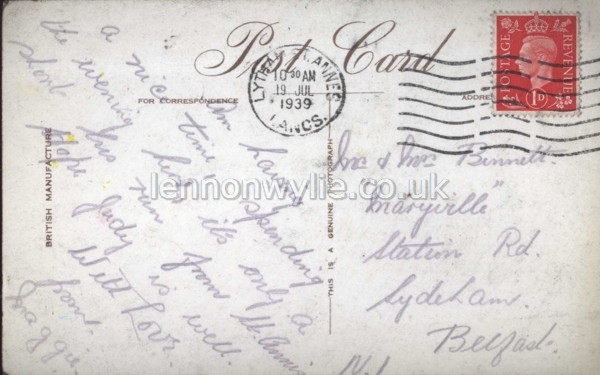 Post Card
FOR CORRESPONDENCE
ADDRE
BRITISH MANUFACTURE
THIS IS A GENUINE PHOTOGRAPH
LYTHAM ST ANNES
10 30 AM
19 JUL
1939
LANCS.
POSTAGE
REVENUE
1D
Am having
a nice time, spending
the evening here its only a
short bus run from St Annes
Hope Judy is well.
With Love
from
Maggie.
Mr & Mrs Bennett.
"Maryville"
Station Rd.
Sydeham.
Belfast.
N.I.
lennonwylie.co.uk